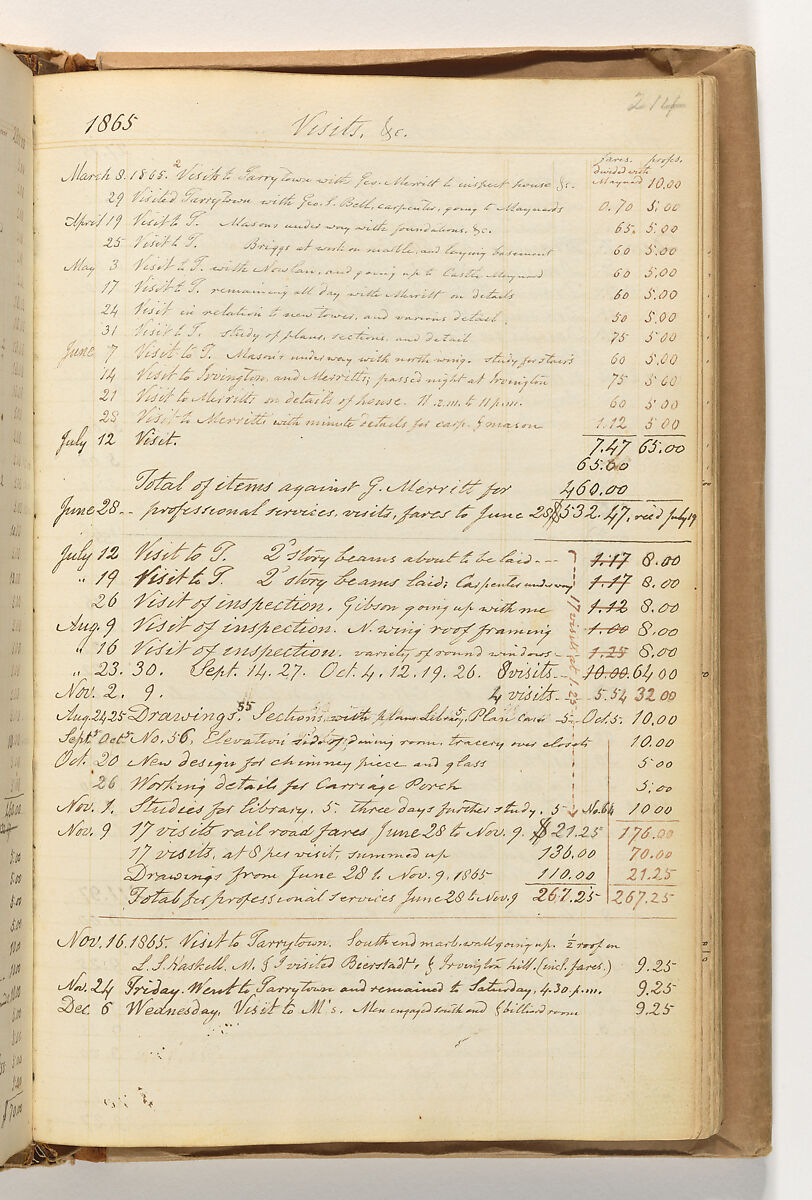 1865 Visits, &c.
fares. profs.
divided with
March 8. 1865. 2 Visit to Tarrytown with Geo. Merritt to inspect house &c. Maynard 10.00
29 Visited Tarrytown with Geo. L. Bell, carpenter, going to Maynards 0.70 5.00
April 19 Visit to T. Masons under way with foundations, &c. 65. 5.00
25 Visit to T. Briggs at work on marble, and laying basement 60 5.00
May 3 Visit to T. with Nowlan, and going up to Castle Maynard 60 5.00
17 Visit to T. remaining all day with Merritt on details 60 5.00
24 Visit in relation to new tower, and various detail. 50 5.00
31 Visit to T. study of plans, sections, and detail 75 5.00
June 7 Visit to T. Masons underway with north wing. study for stairs 60 5.00
14 Visit to Irvington, and Merritts; passed night at Irvington 75 5.00
21 Visit to Merritts on details of house. 11 a.m. to 11 p.m. 60 5.00
28 Visit to Merritts with minute details for carp. & mason 1.12 5.00
July 12 Visit. 7.47 65.00
65.00
Total of items against G. Merritt for 460.00
June 28 -- professional services, visits, fares to June 28 $532.47, recd July 19
July 12 Visit to T. 2d story beams about to be laid -- 1.17 8.00
" 19 Visit to T. 2d story beams laid; Carpenter underway 1.17 8.00
26 Visit of inspection. Gibson going up with me 1.12 8.00
Aug. 9 Visit of inspection. N. wing roof framing 1.00 8.00
" 16 Visit of inspection. variety of round windows - 1.25 8.00
17 visits at 1.25
" 23. 30. Sept. 14. 27. Oct. 4. 12. 19. 26. 8 visits -- 10.00. 64.00
Nov. 2. 9. 4 visits -- 5.54 32.00
Aug. 24 25 Drawings. 55 Sections, with plans Library, 5 Plan - 5 - Oct. 5. 10.00
Sept. 5 Oct. 5 No. 56. Elevation side of dining room, tracery over closets 10.00
Oct. 20 New design for chimney piece and glass 5.00
26 Working details for Carriage Porch 5.00
Nov. 1. Studies for Library. 5 three days further study. 5 No. 64 10.00
Nov. 9 17 visits rail road fares June 28 to Nov. 9. $21.25 176.00
17 visits, at 8 per visit, summed up 136.00 70.00
Drawings from June 28 to Nov. 9, 1865 110.00 21.25
Total for professional services June 28 to Nov. 9 267.25 267.25
Nov. 16. 1865. Visit to Tarrytown. South end marb. wall going up. ½ roof on
L. S. Haskell, M. & I visited Bierstadt, & Irvington hill. (incl. fares.) 9.25
Nov. 24 Friday. Went to Tarrytown and remained to Saturday, 4.30 p.m. 9.25
Dec. 6 Wednesday. Visit to M's. Men engaged south end & billiard room 9.25